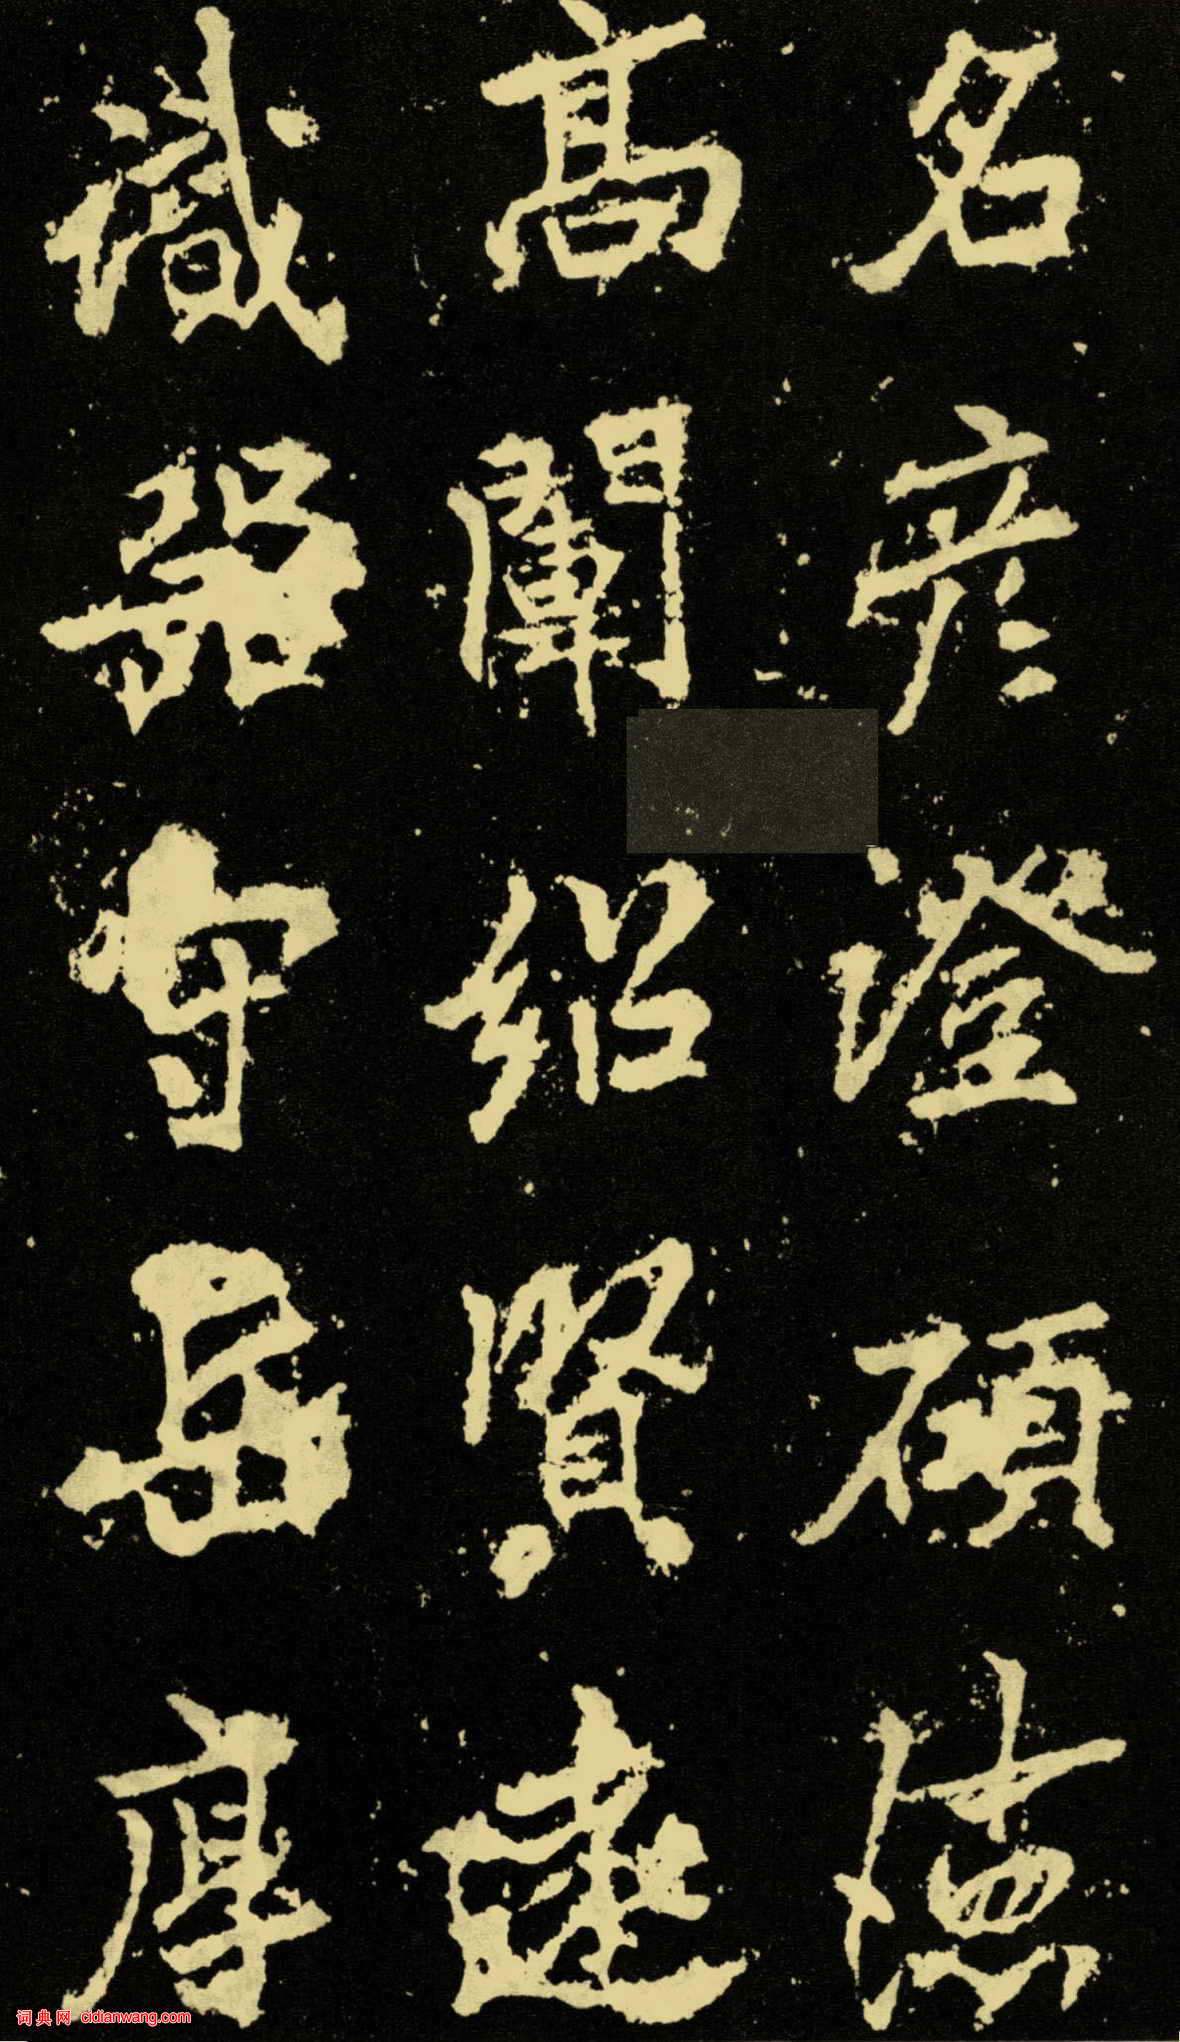 名彦澄碩德
高闡紹賢達
識器守岳厚
词典网 cidianwang.com